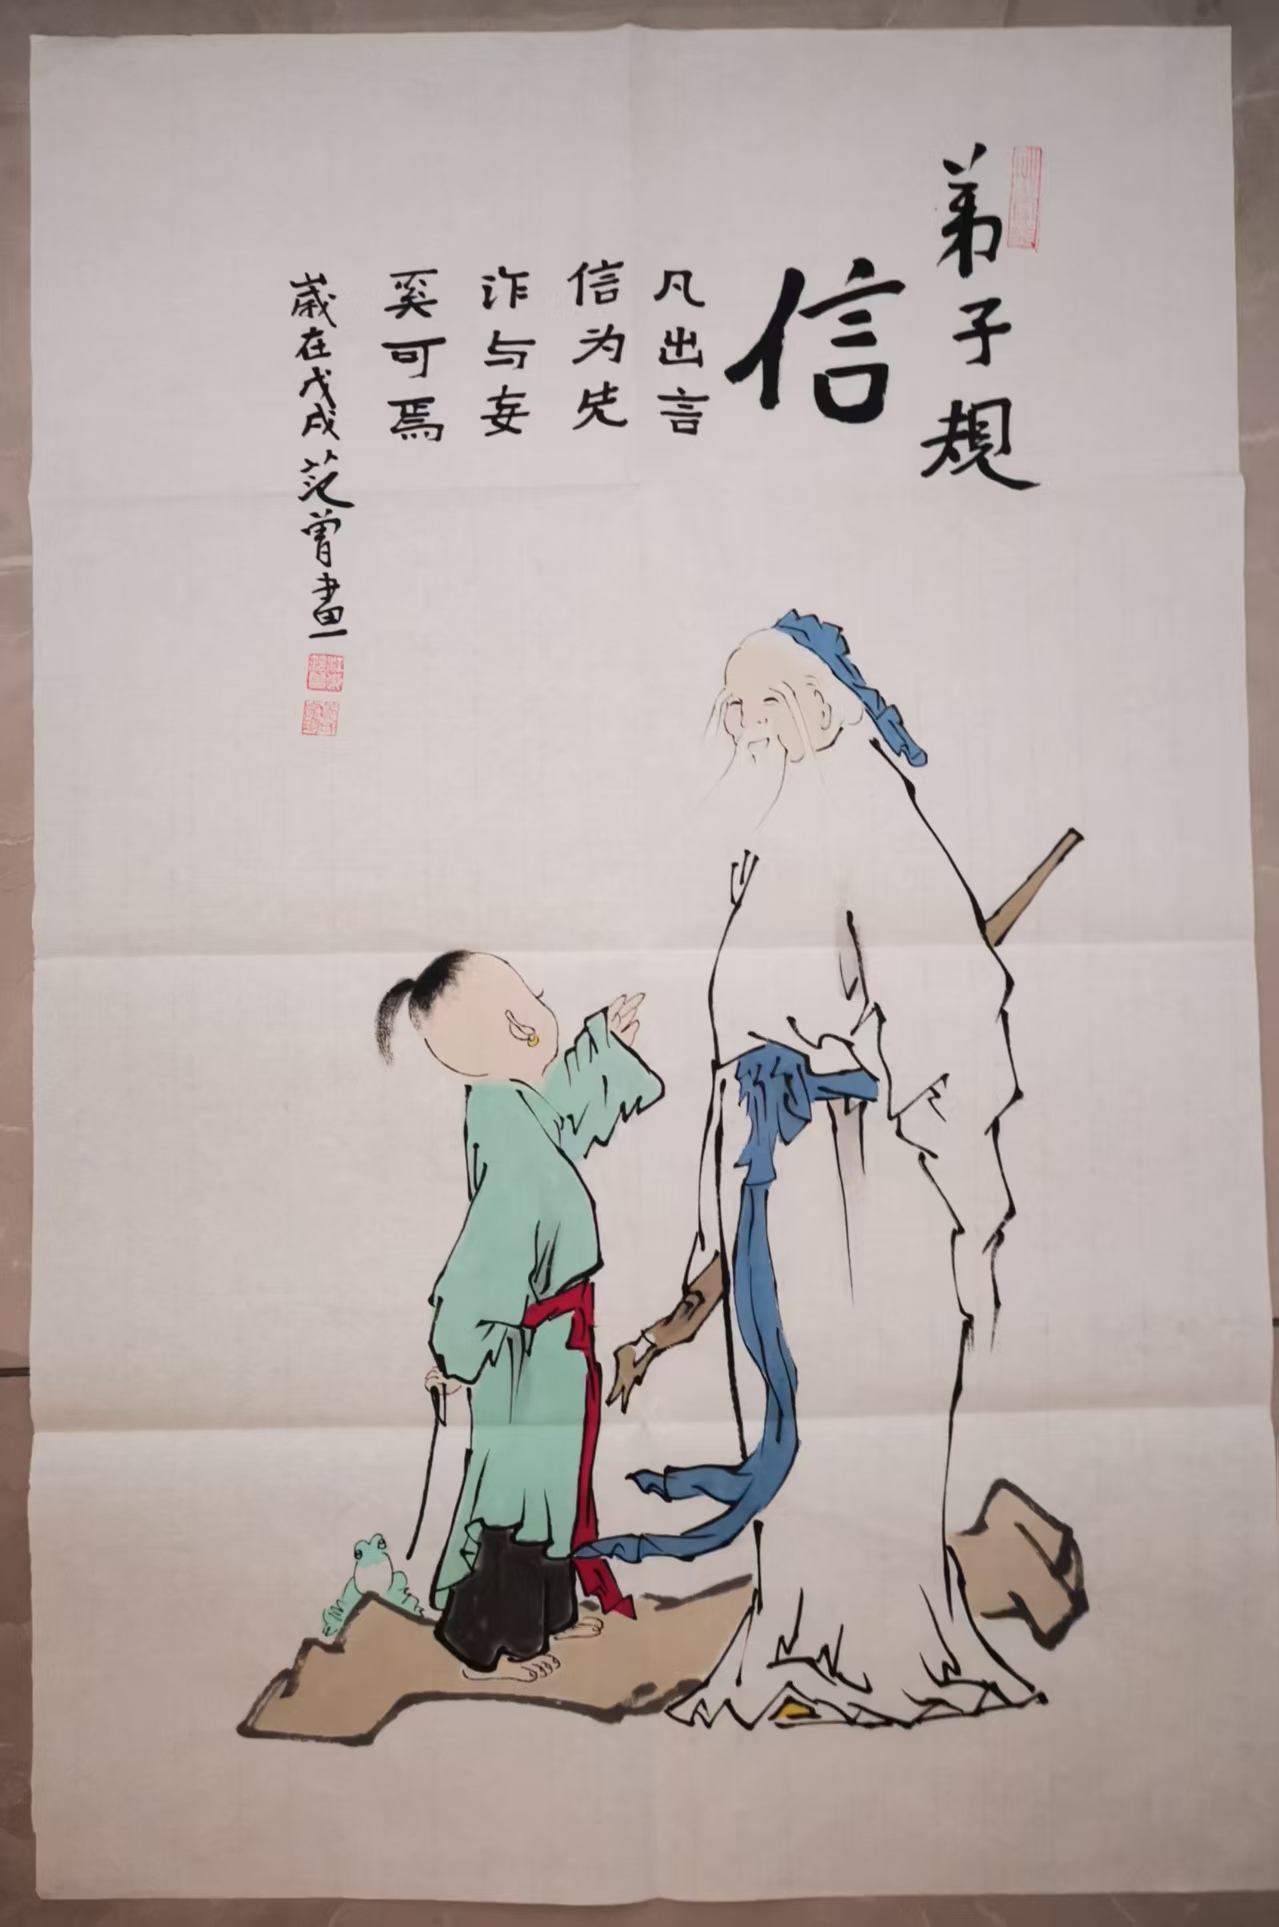 弟子规
信
凡出言
信为先
诈与妄
奚可焉
歲在戊戌范曾畫